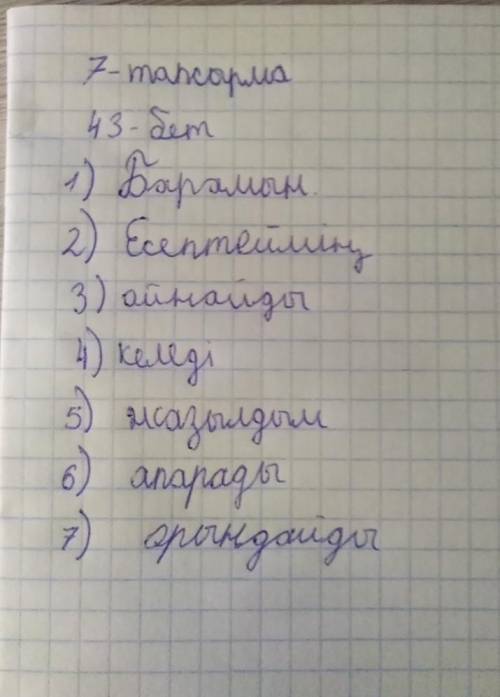 7-тапсарма
43-бет
1) Барамын.
2) Есептейміңң
3) ойнайды
4) келеді
5) жазылдым
6) апарады
7) орындайды